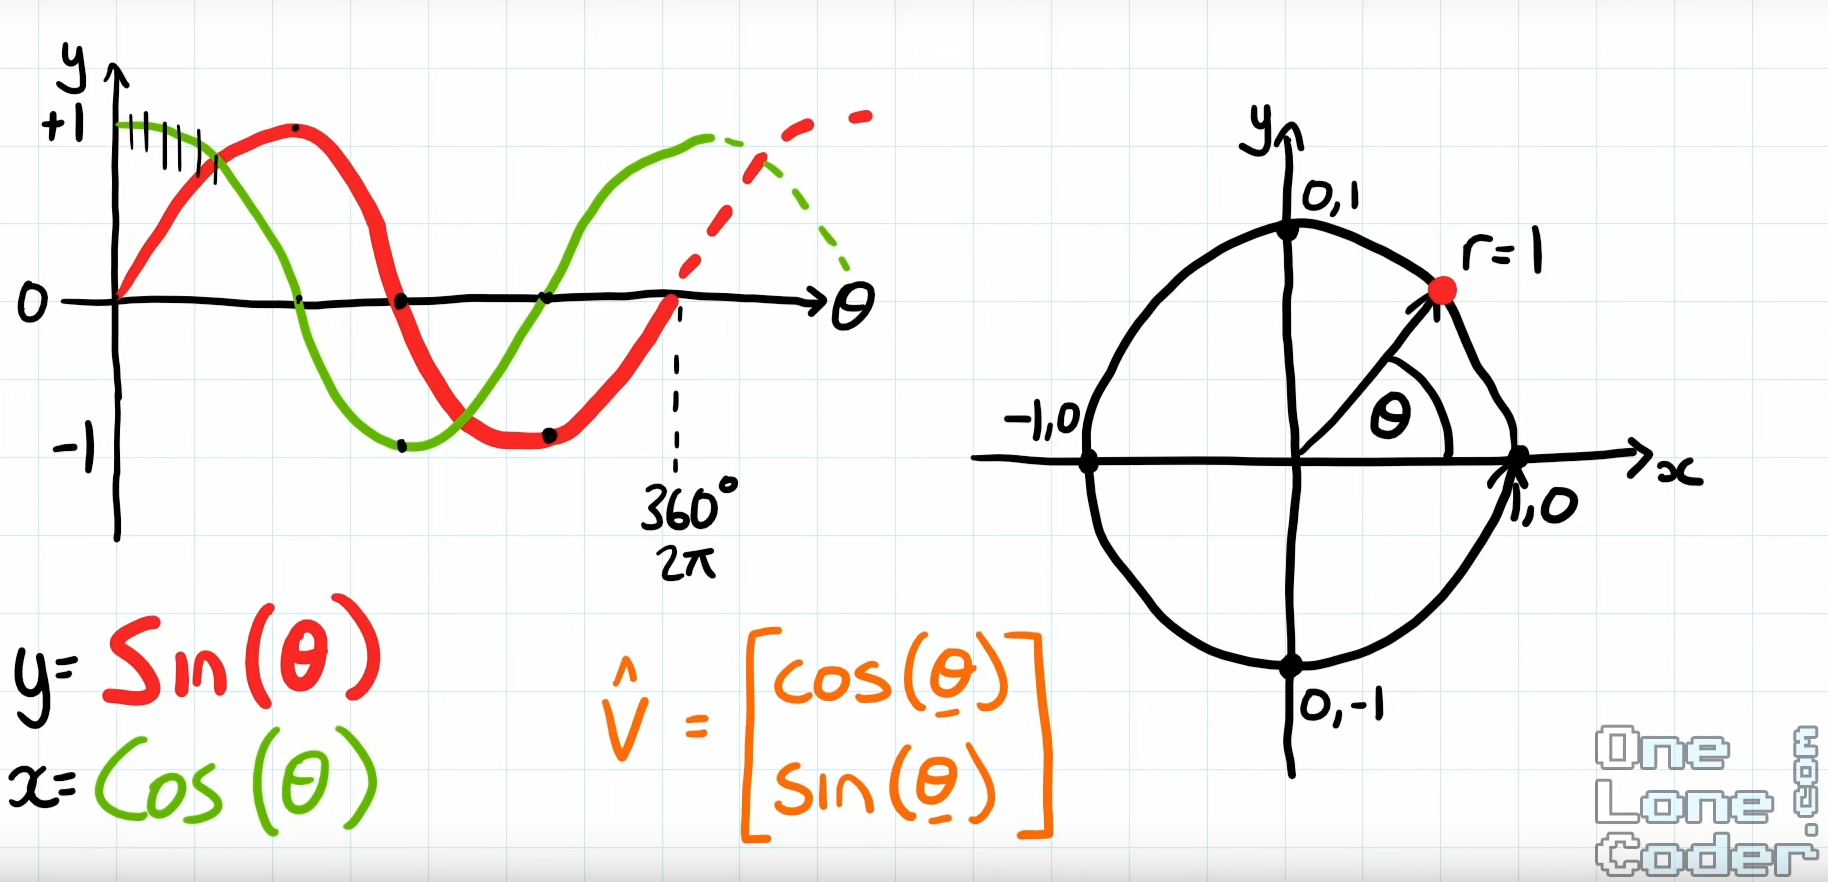 y
+1
0
θ
-1
360°
2π
y= Sin(θ)
x= Cos(θ)
v̂ = [cos(θ)
sin(θ)]
y
0,1
r=1
-1,0
θ
x
1,0
0,-1
One
Lone
Coder
.com